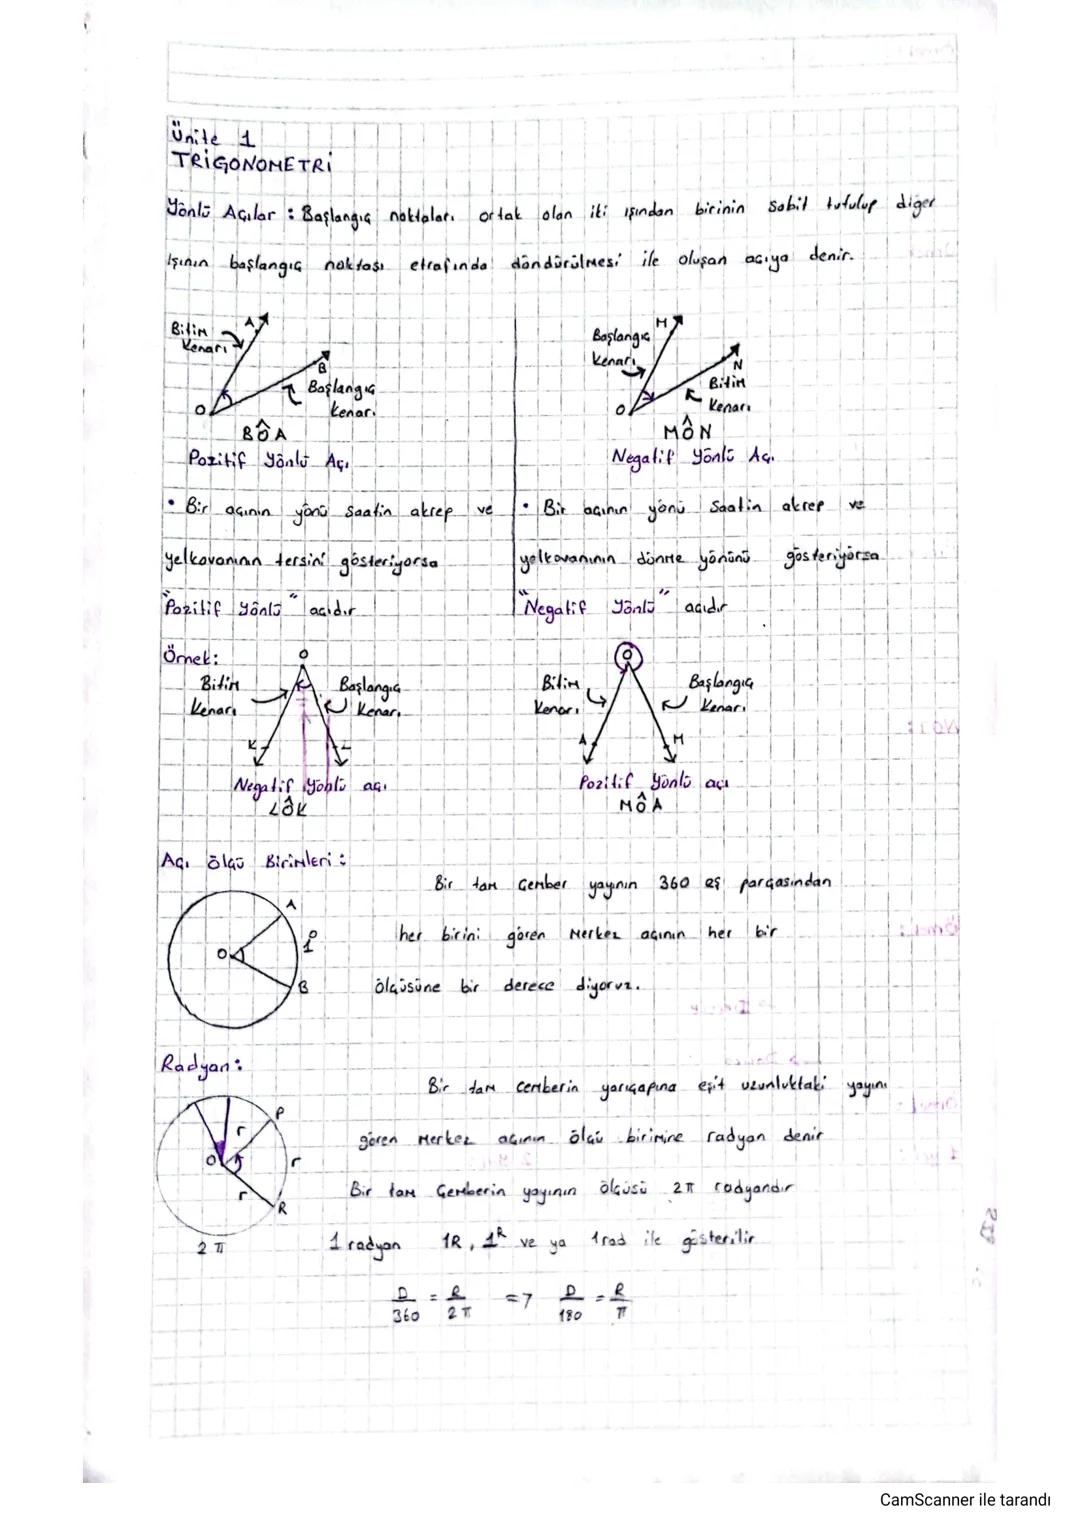 Ünite 1
TRİGONOMETRİ
Yönlü Açılar : Başlangıç noktaları ortak olan iki ışından birinin sabit tutulup diğer
ışının başlangıç noktası etrafında döndürülmesi ile oluşan açıya denir.
Bitim
Kenarı
A
B
Başlangıç
Kenarı
O
BÔA
Pozitif Yönlü Açı
Başlangıç
Kenarı
M
N
Bitim
Kenarı
O
MÔN
Negatif Yönlü Açı
• Bir açının yönü saatin akrep ve
yelkovanının tersini gösteriyorsa
"Pozitif Yönlü" açıdır
• Bir açının yönü saatin akrep ve
yelkovanının dönme yönünü gösteriyorsa
"Negatif Yönlü" açıdır
Örnek:
O
Bitim
Kenarı
Başlangıç
Kenarı
K
L
Negatif Yönlü açı
LÔK
O
Bitim
Kenarı
Başlangıç
Kenarı
A
M
Pozitif Yönlü açı
MÔA
Açı Ölçü Birimleri :
A
O
1°
B
Bir tam Çember yayının 360 eş parçasından
her birini gören Merkez açının her bir
ölçüsüne bir derece diyoruz.
Radyan :
P
r
O
r
r
R
2π
Bir tam Çemberin yarıçapına eşit uzunluktaki yayını
gören Merkez açının ölçü birimine radyan denir
Bir tam Çemberin yayının ölçüsü 2π radyandır
1 radyan 1R, 1ᴿ ve ya 1rad ile gösterilir
D/360 = R/2π => D/180 = R/π
CamScanner ile tarandı